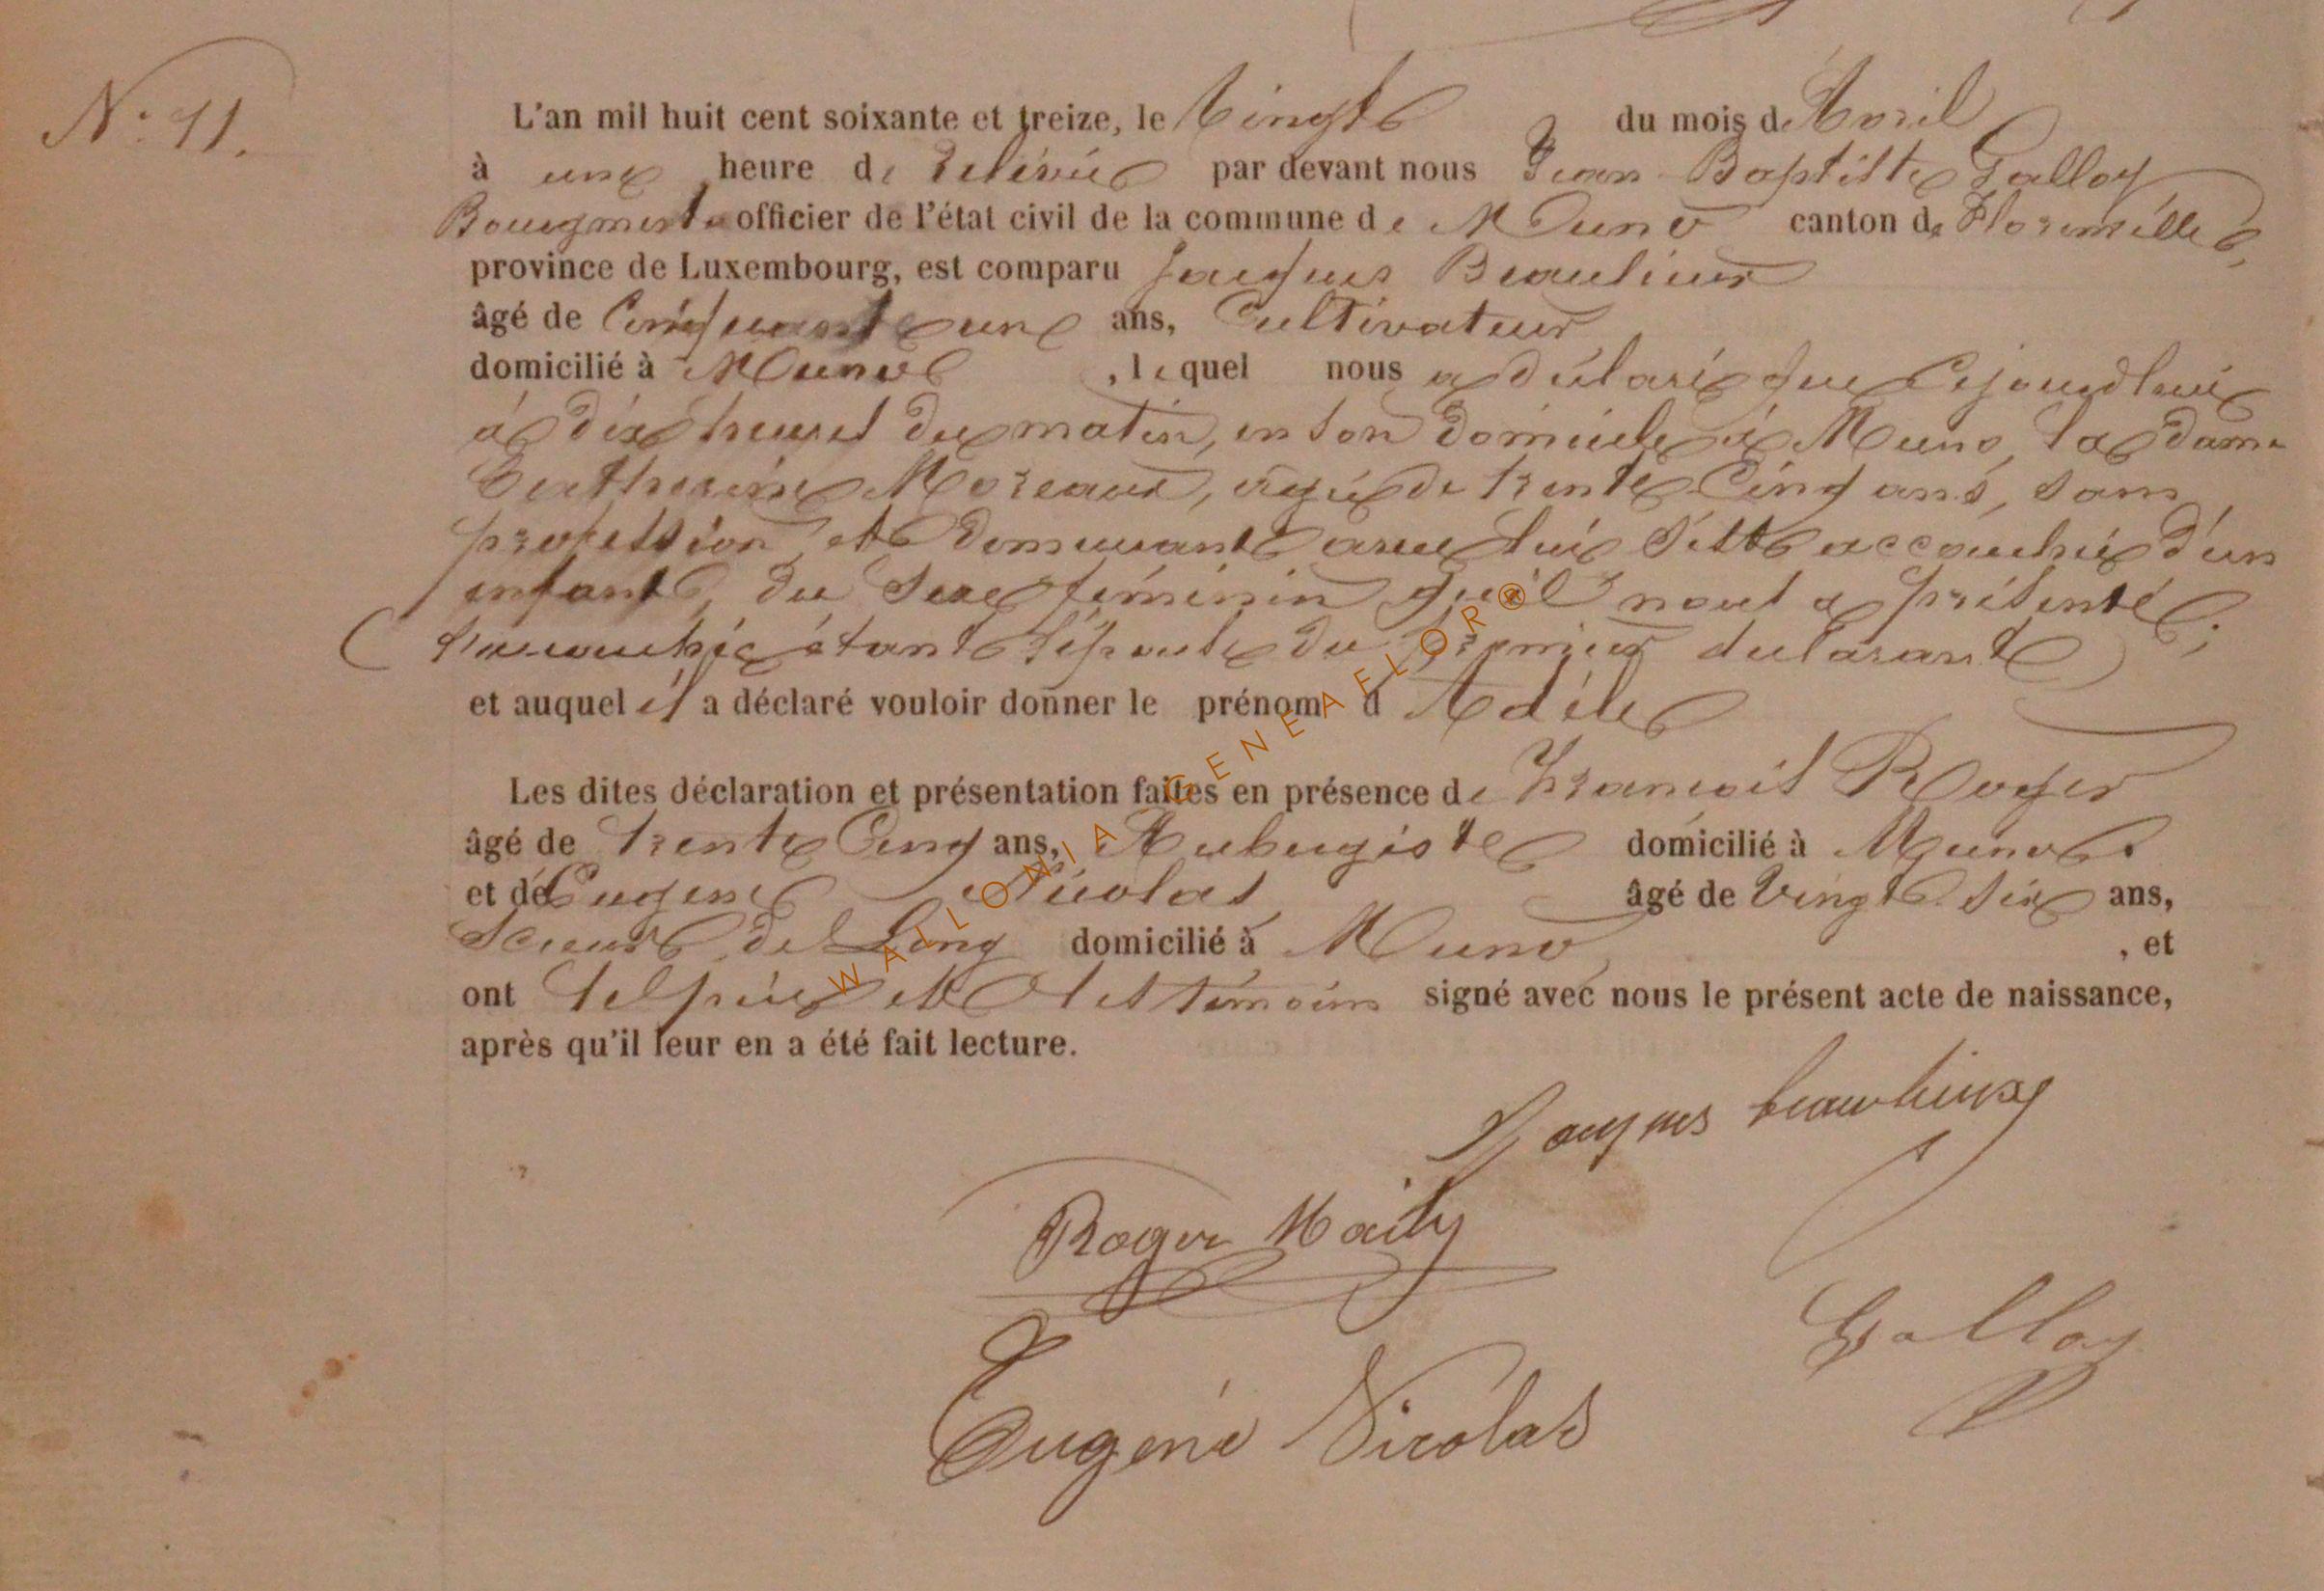 N° 11.
L'an mil huit cent soixante et treize, le vingt du mois de Avril
à une heure de relevée par devant nous Jean Baptiste Galloy
Bourgmestre officier de l'état civil de la commune de Muno canton de Florenville,
province de Luxembourg, est comparu Jacques Beaulieux
âgé de Cinquante un ans, Cultivateur
domicilié à Muno, lequel nous a déclaré que Cejourd'hui
à dix heures du matin, en son domicile à Muno, la dame
Catherine Moreaux, agée de trente Cinq ans, sans
profession et demeurant avec lui s'est accouchée d'un
enfant du Sexe féminin qu'il nous a présenté;
(l'accouchée étant l'épouse du premier déclarant)
et auquel il a déclaré vouloir donner le prénom d'Adèle
Les dites déclaration et présentation faites en présence de François Roger
âgé de trente Cinq ans, Aubergiste domicilié à Muno.
et de Eugene Nicolas âgé de vingt six ans,
Scieur de Long domicilié à Muno, et
ont les père et les témoins signé avec nous le présent acte de naissance,
après qu'il leur en a été fait lecture.
Jacques beaulieux
Roger Maily
Galloy
Eugéne Nicolas
WALLONIA GENEAFLOR®